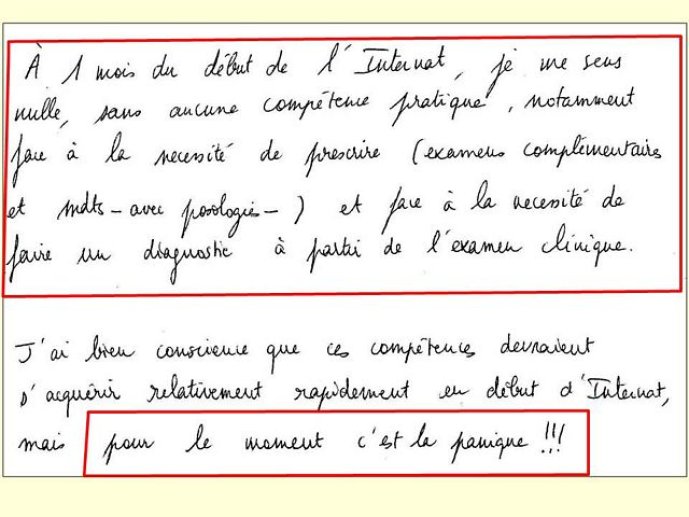 À 1 mois du début de l'Internat, je me sens
nulle, sans aucune compétence pratique, notamment
face à la necessité de prescrire (examens complémentaires
et mdts - avec posologie -) et face à la necessité de
faire un diagnostic à partir de l'examen clinique.
J'ai bien conscience que ces compétences devraient
s'acquérir relativement rapidement en début d'Internat,
mais pour le moment c'est la panique !!!